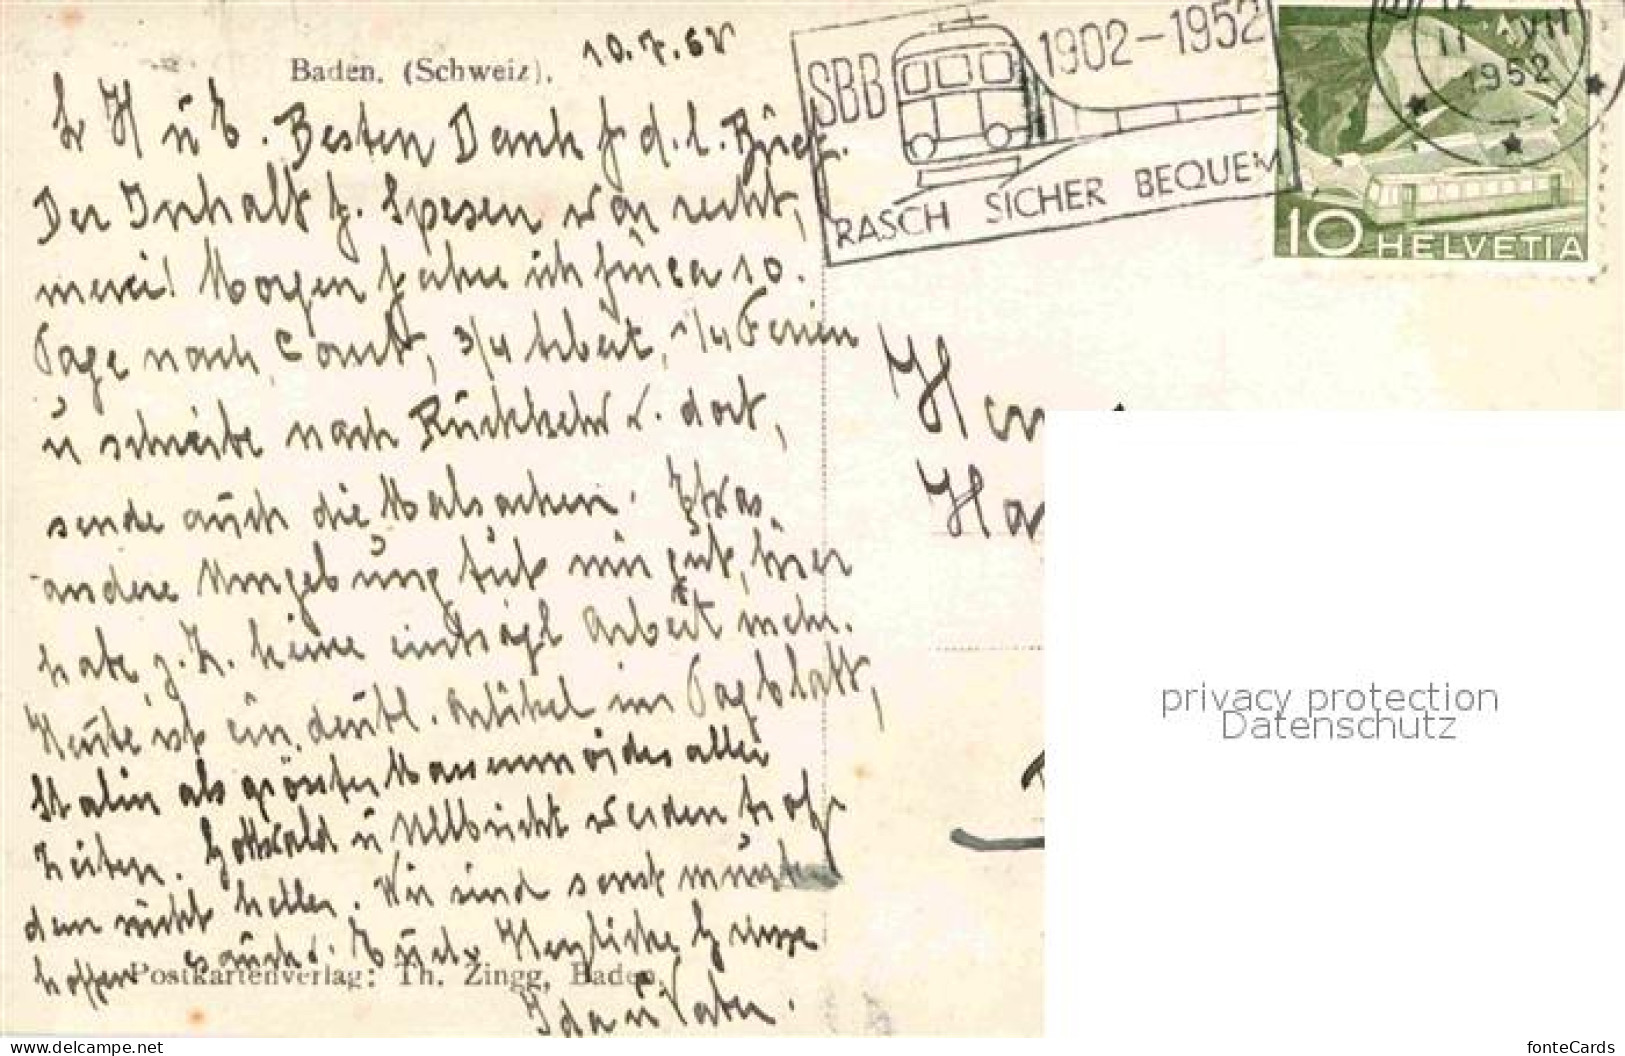 Baden. (Schweiz).
10.7.52
SBB 1902-1952
RASCH SICHER BEQUEM
11 VII
1952
10 HELVETIA
L H ü E. Besten Dank f. d. l. Brief.
Der Inhalt f. Spesen war recht,
merci! Morgen fahre ich für ca 10.
Tage nach Court, 3/4 Arbeit, 1/4 Ferien
ü schreibe nach Rückkehr v. dort,
sende auch die Malsachen. Etwas
andere Umgebung tüt mir güt, hier
habe z. Z. keine einträgl Arbeit mehr.
Heute ist ein deutl. Artikel im Tagblatt,
Stalin als grösster Massenmörder aller
Zeiten. Gottwald ü Ulbricht werden trotz
dem nicht heller. Wir sind sonst
hoffen
Herzliche Grüsse
Ida ü Vater.
Postkartenverlag: Th. Zingg, Baden.
Ha
privacy protection
Datenschutz
www.delcampe.net
fonteCards